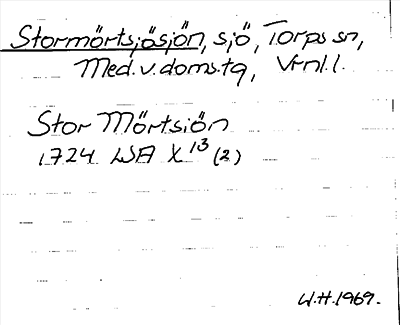 Stormörtsjösjön, sjö, Torps sn,
Med. v. doms.tg, Vrnl. l.
Stor Mörtsiön
1724 LSA X 13 (2)
W.H. 1969.